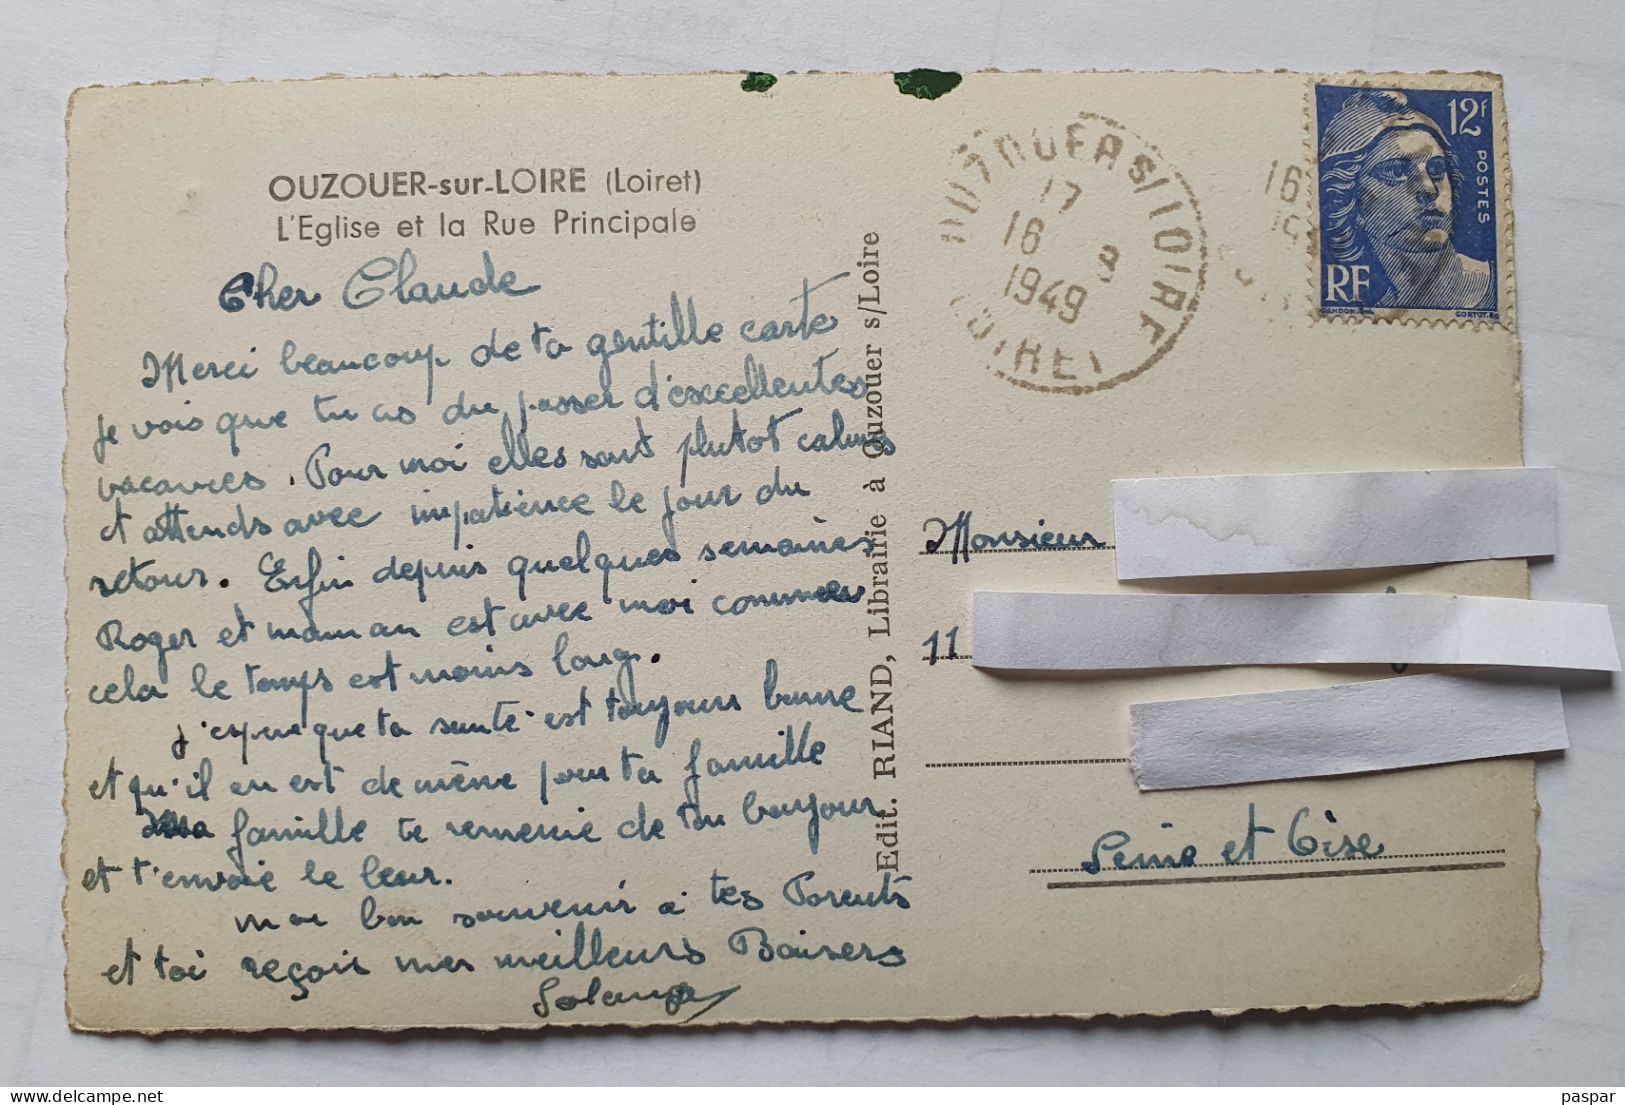 OUZOUER-sur-LOIRE (Loiret)
L'Eglise et la Rue Principale
Cher Claude
Merci beaucoup de ta gentille carte
je vois que tu as du passer d'excellentes
vacances. Pour moi elles sont plutot calmes
et attends avec impatience le jour du
retour. Enfin depuis quelques semaines
Roger et maman est avec moi comme
cela le temps est moins long.
j'espere que ta santé est toujours bonne
et qu'il en est de même pour ta famille
Ma famille te remercie de ton bonjour
et t'envoie le leur.
mon bon souvenir à tes Parents
et toi reçois mes meilleurs Baisers
Solange
Edit. RIAND, Librairie à Ouzouer s/Loire
OUZOUER S/LOIRE
17
16 8
1949
LOIRET
16
12F
POSTES
RF
GANDON
CORTOT
Monsieur
11
Seine et Oise
paspar